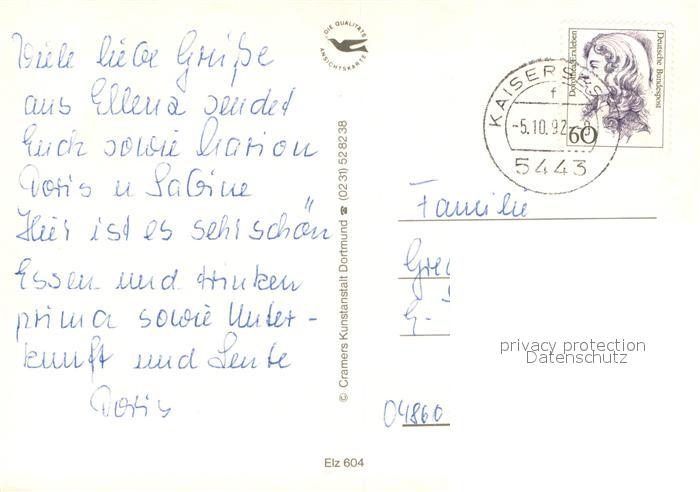 Viele liebe Grüße
aus Ellenz sendet
Euch sowie Marion
Doris u Sabine
Hier ist es sehr schön
Essen und trinken
prima sowie Unter-
kunft und Leute
Doris
DIE QUALITÄTS
ANSICHTSKARTE
© Cramers Kunstanstalt Dortmund ☎ (0231) 528238
Elz 604
Deutsche Bundespost
60
KAISERSESCH
f
-5.10.92.-8
5443
Familie
04860
privacy protection
Datenschutz